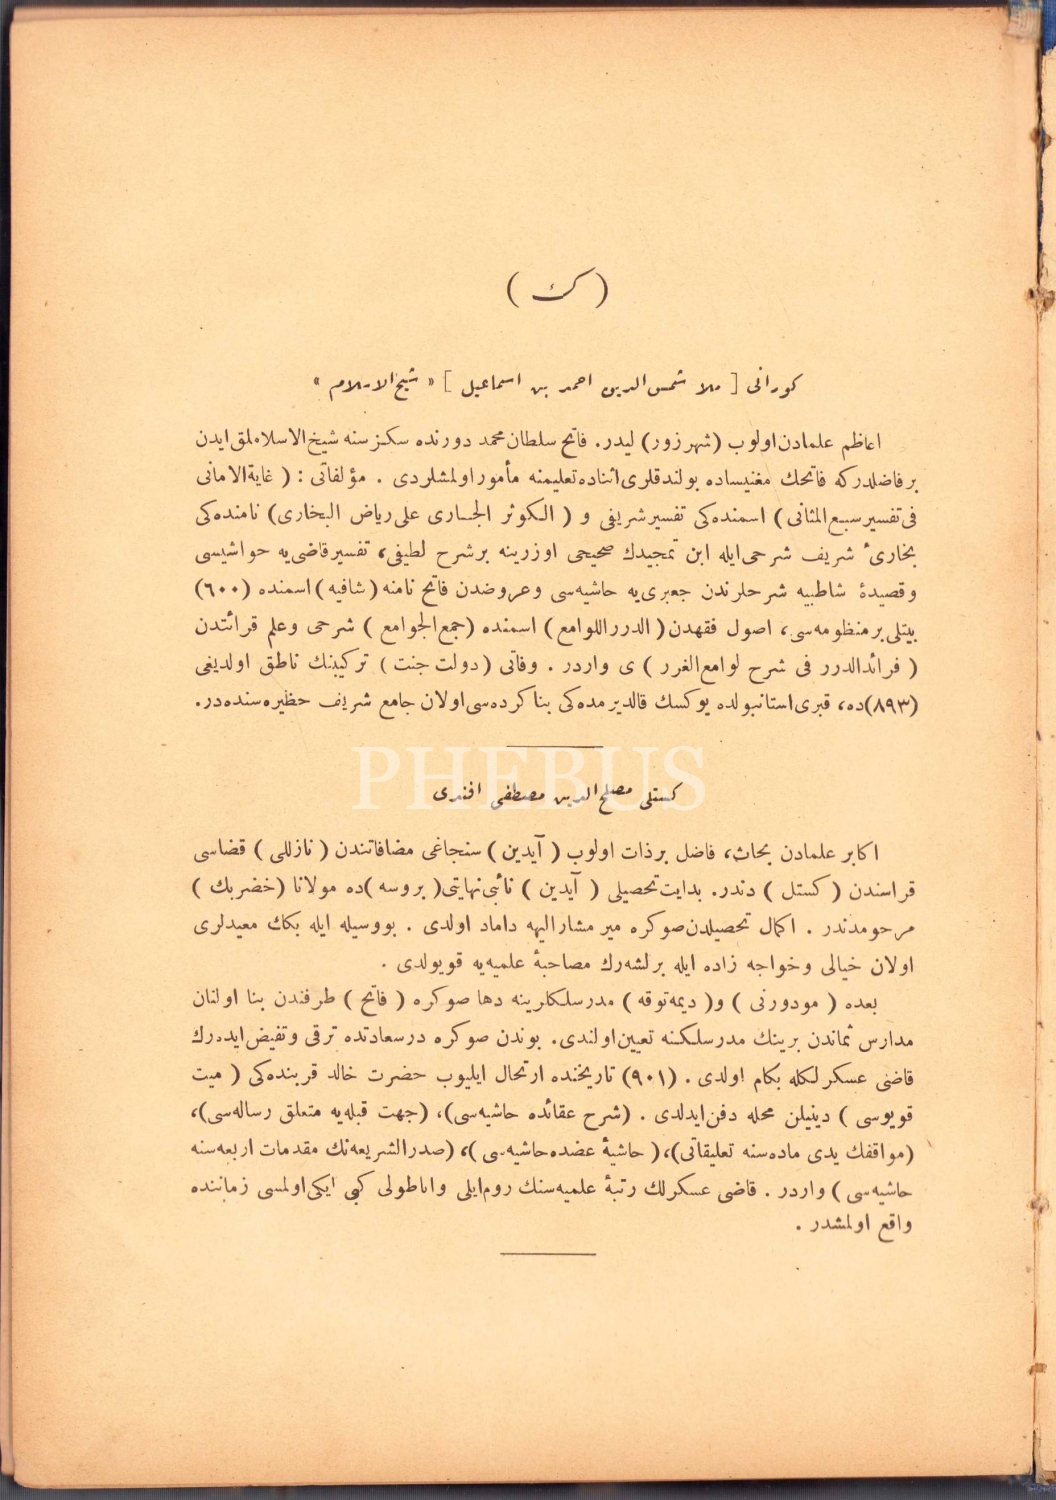 ( ك )
كورانى [ ملا شمس الدين احمد بن اسماعيل ] « شيخ الاسلام »
اعاظم علمادن اولوب (شهرزور) ليدر. فاتح سلطان محمد دورنده سكز سنه شيخ الاسلاملق ايدن
برفاضلدركه فاتحك مغنيساده بولندقلرى اثناده تعليمنه مأمور اولمشلردى . مؤلفاتى : ( غاية الامانى
فى تفسير سبع المثانى ) اسمنده كى تفسير شريفى و ( الكوثر الجارى على رياض البخارى) نامنده كى
بخارئ شريف شرحى ايله ابن تمجيدك صحيحى اوزرينه برشرح لطيفى، تفسير قاضى يه حواشيسى
وقصيدۀ شاطبيه شرحلرندن جعبرى يه حاشيه سى وعروضدن فاتح نامنه (شافيه) اسمنده (٦٠٠)
بيتلى برمنظومه سى، اصول فقهدن (الدرر اللوامع) اسمنده (جمع الجوامع ) شرحى وعلم قرائتدن
( فرائد الدرر فى شرح لوامع الغرر ) ى واردر . وفاتى (دولت جنت) تركيبنك ناطق اولديغى
(٨٩٣)ده، قبرى استانبولده يوكسك قالديرمده كى بنا كرده سى اولان جامع شريف حظيره سنده در.
PHEBUS
كستلى مصلح الدين مصطفى افندى
اكابر علمادن بحاث، فاضل برذات اولوب ( آيدين ) سنجاغى مضافاتندن ( نازللى ) قضاسى
قراسندن ( كستل ) دندر. بدايت تحصيلى ( آيدين ) نائبى نهايتى( بروسه )ده مولانا (خضربك )
مرحومدندر . اكمال تحصيلدن صوكره مير مشار اليهه داماد اولدى . بووسيله ايله بكك معيدلرى
اولان خيالى وخواجه زاده ايله برلشه رك مصاحبۀ علميه يه قويولدى .
بعده ( مودورنى ) و( ديمه توقه ) مدرسلكلرينه دها صوكره ( فاتح ) طرفندن بنا اولنان
مدارس ثماندن برينك مدرسلكنه تعيين اولندى. بوندن صوكره درسعادتده ترقى وتفيض ايده رك
قاضى عسكرلكله بكام اولدى . (٩٠١) تاريخنده ارتحال ايليوب حضرت خالد قربنده كى ( ميت
قويوسى ) دينيلن محله دفن ايدلدى . (شرح عقائده حاشيه سى)، (جهت قبله يه متعلق رساله سى)،
(مواقفك يدى ماده سنه تعليقاتى)، ( حاشيۀ عضده حاشيه سى )، (صدر الشريعه نك مقدمات اربعه سنه
حاشيه سى ) واردر . قاضى عسكرلك رتبۀ علميه سنك روم ايلى واناطولى كبى ايكى اولمسى زماننده
واقع اولمشدر .